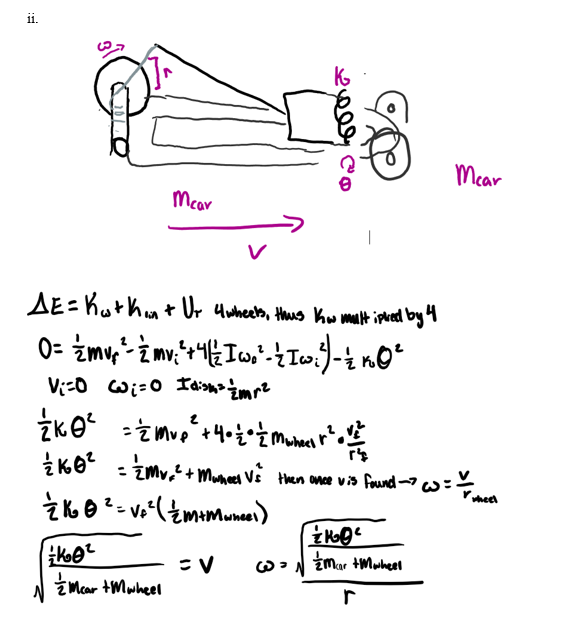 ii.
ω
r
K
θ
m car
m car
V
ΔE = Kω + Klin + Ur 4 wheels, thus Kω multiplied by 4
0 = 1/2 mvf² - 1/2 mvi² + 4(1/2 Iωf² - 1/2 Iωi²) - 1/2 kθ²
Vi=0 ωi=0 Idisk=1/2mr²
1/2 kθ² = 1/2 mvf² + 4•1/2•1/2 mwheel r² • vf²/r²
1/2 kθ² = 1/2 mvf² + mwheel Vf² then once v is found → ω = v/r wheel
1/2 kθ² = Vf²(1/2 m + mwheel)
√((1/2 kθ²)/(1/2 mcar + mwheel)) = V ω = √((1/2 kθ²)/(1/2 mcar + mwheel))/r